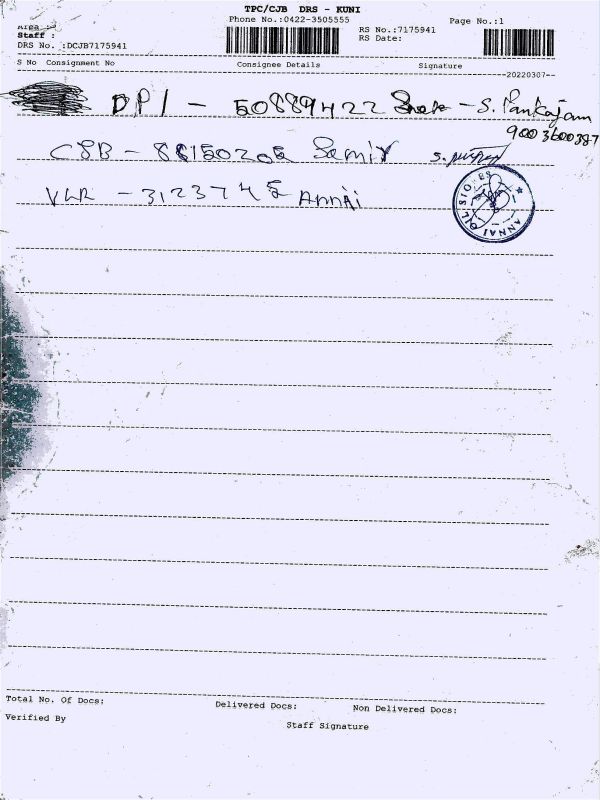 TPC/CJB DRS - KUNI
Phone No.:0422-3505555 Page No.:1
Staff : RS No.:7175941
DRS No. :DCJB7175941 RS Date:
S No Consignment No Consignee Details Signature
20220307
DPI - 50889422 - S. Pankajam
9003600387
CSB - Samir
VLR - 3123745 Annai
ANNAI OIL STORES
Total No. Of Docs: Delivered Docs: Non Delivered Docs:
Verified By Staff Signature